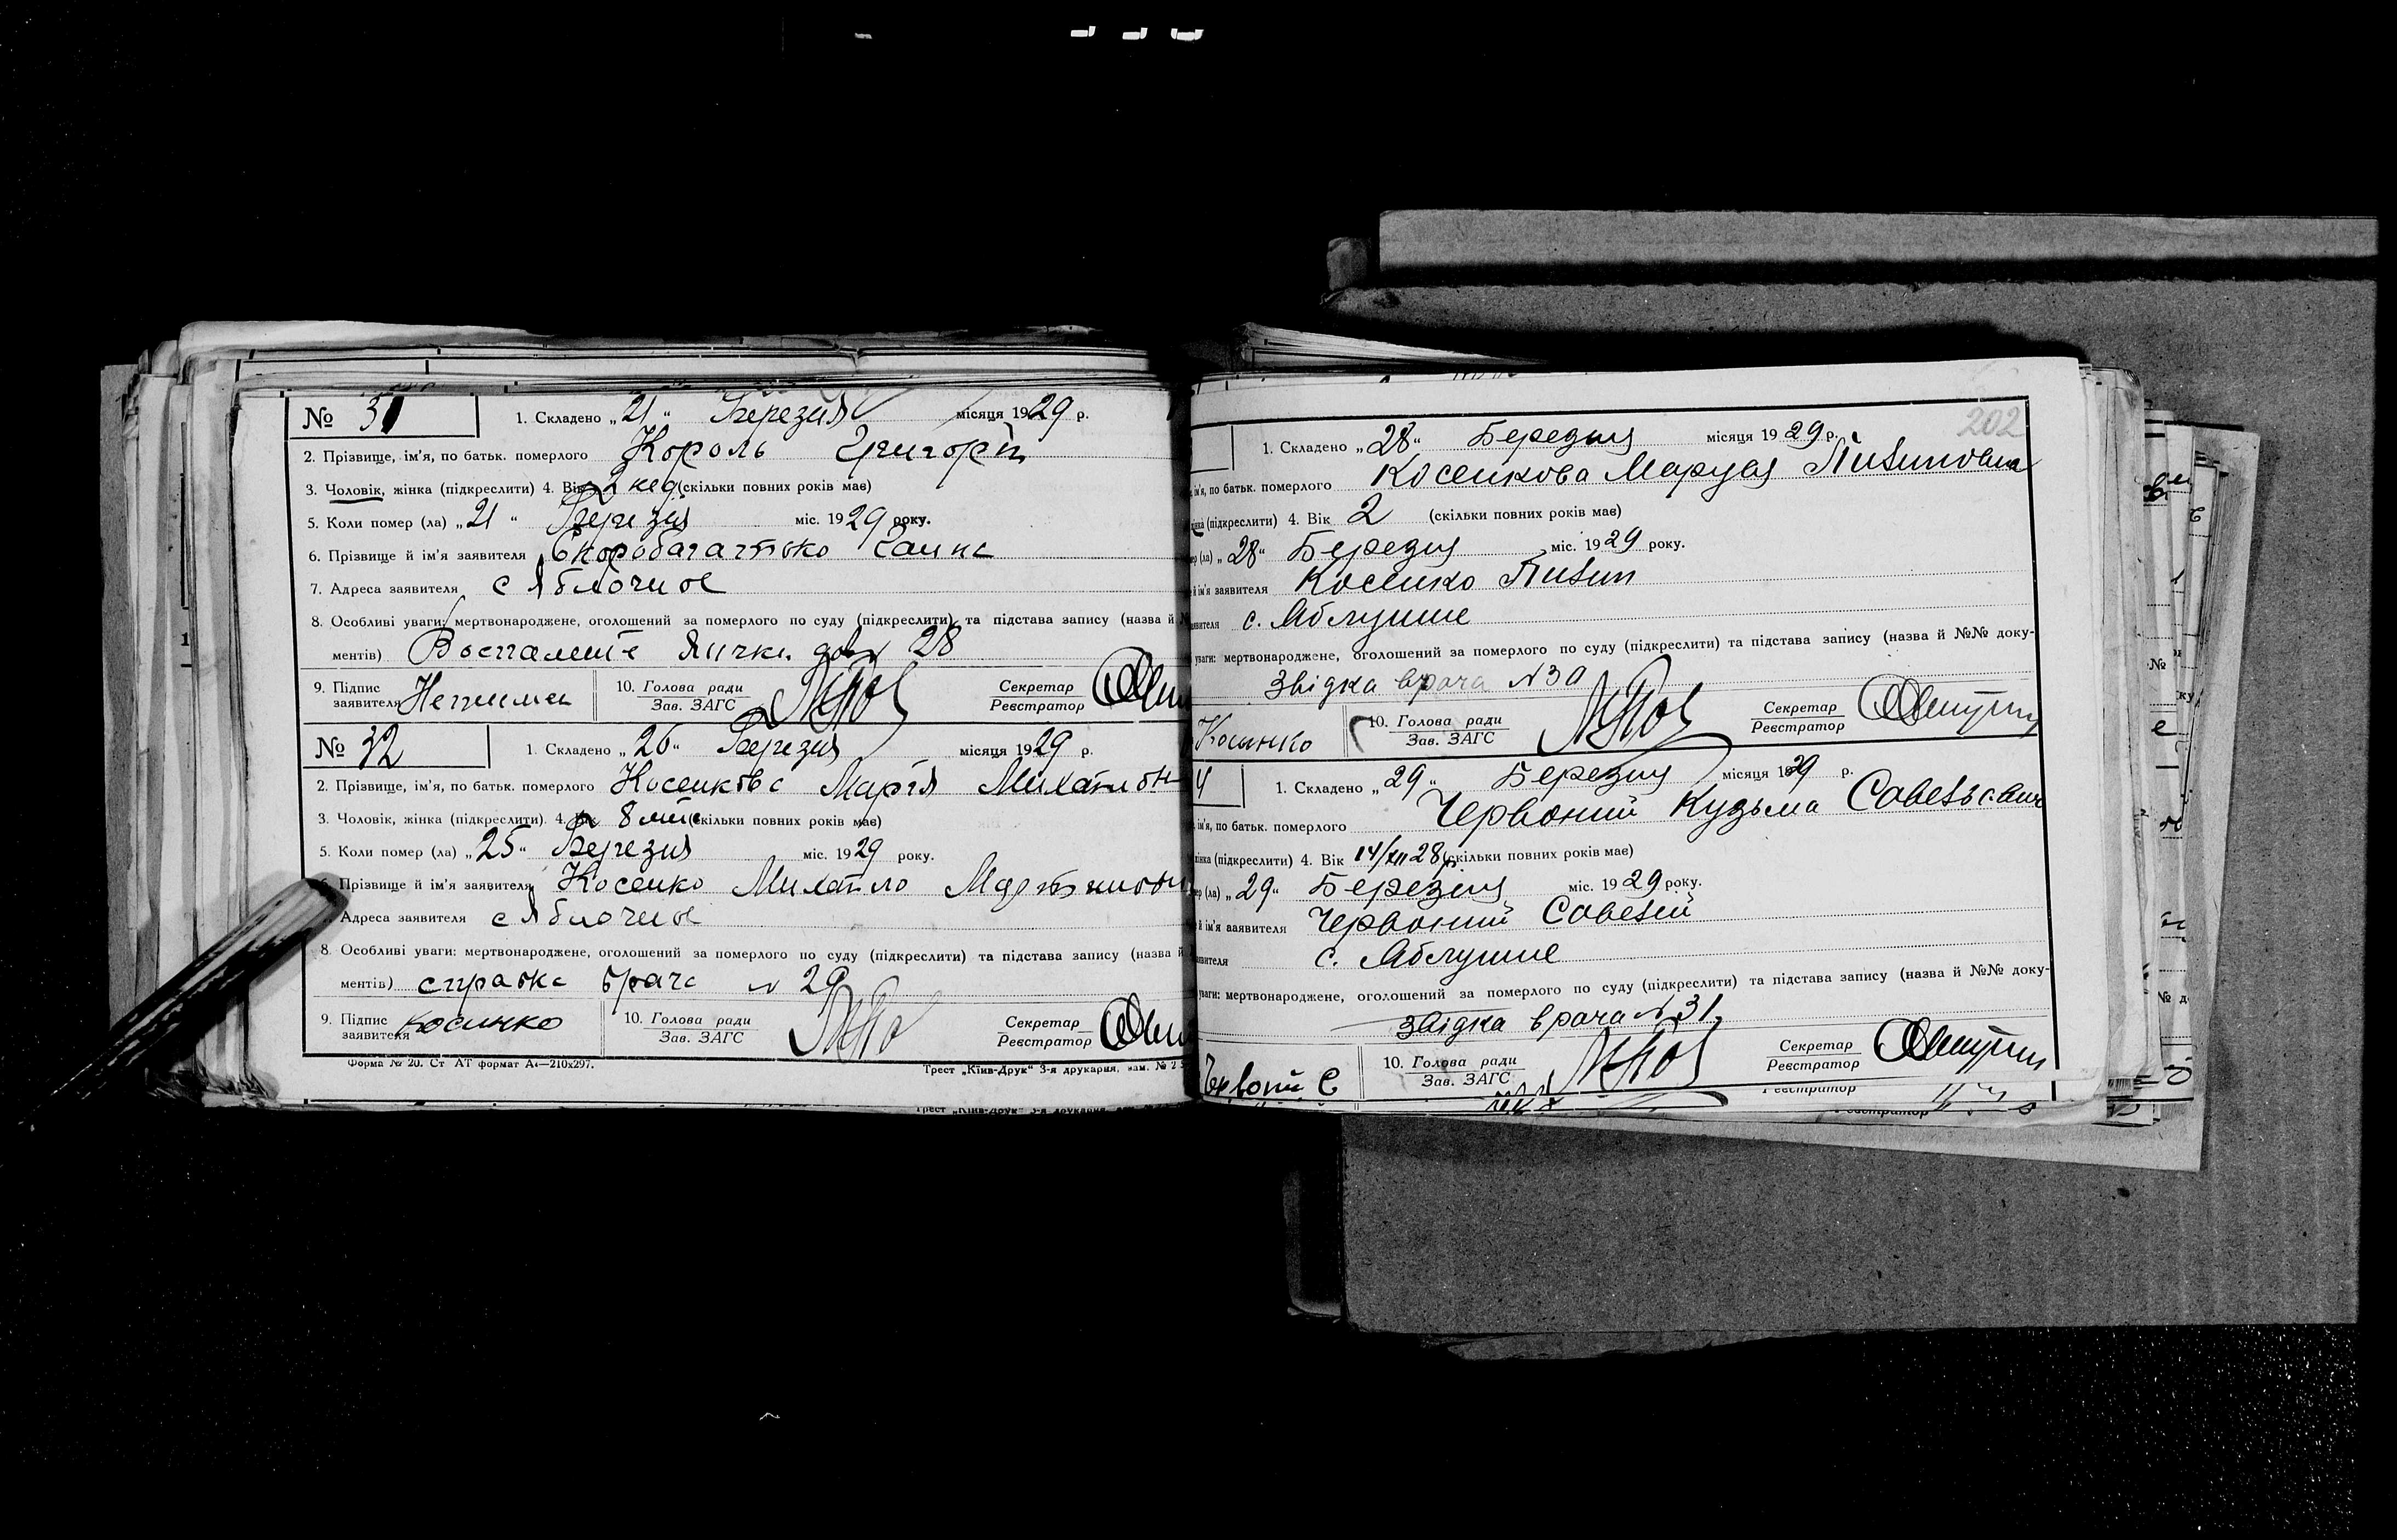 № 31 1. Складено „21" Березня місяця 1929 р.
2. Прізвище, ім'я, по батьк. померлого Король Григорій
3. Чоловік, жінка (підкреслити) 4. Вік 2 нед (скільки повних років має)
5. Коли помер (ла) „21" Березня міс. 1929 року.
6. Прізвище й ім'я заявителя Скоробагатько
7. Адреса заявителя с Яблочное
8. Особливі уваги: мертвонароджене, оголошений за померлого по суду (підкреслити) та підстава запису (назва й
ментів) 28
9. Підпис заявителя 10. Голова ради Зав. ЗАГС Секретар Реєстратор
№ 32 1. Складено „26" Березня місяця 1929 р.
2. Прізвище, ім'я, по батьк. померлого Косенкова Марія Михайловн
3. Чоловік, жінка (підкреслити) 4. 8 міс (скільки повних років має)
5. Коли помер (ла) „25" Березня міс. 1929 року.
Прізвище й ім'я заявителя Косенко Михайло
Адреса заявителя с Яблочное
8. Особливі уваги: мертвонароджене, оголошений за померлого по суду (підкреслити) та підстава запису (назва й
ментів) справка врача № 29
9. Підпис заявителя Косинко 10. Голова ради Зав. ЗАГС Секретар Реєстратор
Форма № 20. Ст АТ формат А4—210х297. Трест „Київ-Друк" 3-я друкарня, зам. №
202
1. Складено „28" Березня місяця 1929 р.
ім'я, по батьк. померлого Косенкова Маруся Пилиповна
(підкреслити) 4. Вік 2 (скільки повних років має)
(ла) „28" Березня міс. 1929 року.
й ім'я заявителя Косенко Пилип
с. Яблушне
уваги: мертвонароджене, оголошений за померлого по суду (підкреслити) та підстава запису (назва й №№ доку-
Звідка врача №30
Косинко 10. Голова ради Зав. ЗАГС Секретар Реєстратор
4 1. Складено „29" Березня місяця 1929 р.
ім'я, по батьк. померлого Червоний Кузьма
жінка (підкреслити) 4. Вік 14/XII 28 р. (скільки повних років має)
(ла) „29" Березня міс. 1929 року.
й ім'я заявителя Червоний Савелій
с. Яблушне
уваги: мертвонароджене, оголошений за померлого по суду (підкреслити) та підстава запису (назва й №№ доку-
Звідка врача №31.
10. Голова ради Зав. ЗАГС Секретар Реєстратор